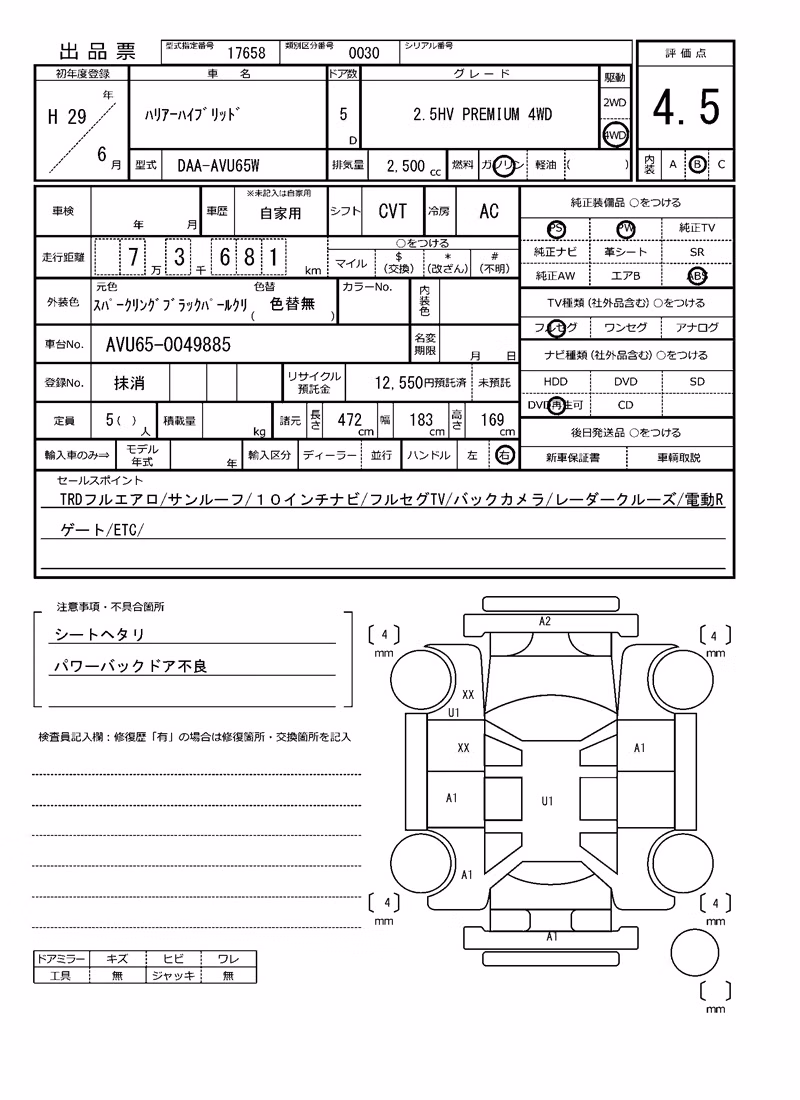 出品票
型式指定番号 17658 類別区分番号 0030 シリアル番号
評価点
4.5
内装 A B C
初年度登録 車名 ドア数 グレード 駆動
H 29 年 6 月
ﾊﾘｱｰﾊｲﾌﾞﾘｯﾄﾞ 5 D 2.5HV PREMIUM 4WD 2WD 4WD
型式 DAA-AVU65W 排気量 2,500 cc 燃料 ガソリン 軽油 ( )
車検 年 月 車歴 ※未記入は自家用 自家用 シフト CVT 冷房 AC
走行距離 7 万 3 千 6 8 1 km
○をつける
マイル $(交換) *(改ざん) #(不明)
外装色 元色 ｽﾊﾟｰｸﾘﾝｸﾞﾌﾞﾗｯｸﾊﾟｰﾙｸﾘ 色替 ( 色替無 ) カラーNo. 内装色
車台No. AVU65-0049885 名変期限 月 日
登録No. 抹消 リサイクル預託金 12,550円預託済 未預託
定員 5( ) 人 積載量 kg 諸元 長さ 472 cm 幅 183 cm 高さ 169 cm
輸入車のみ⇒ モデル年式 年 輸入区分 ディーラー 並行 ハンドル 左 右
純正装備品 ○をつける
PS PW 純正TV
純正ナビ 革シート SR
純正AW エアB ABS
TV種類(社外品含む) ○をつける
フルセグ ワンセグ アナログ
ナビ種類(社外品含む) ○をつける
HDD DVD SD
DVD再生可 CD
後日発送品 ○をつける
新車保証書 車輌取説
セールスポイント
TRDフルエアロ/サンルーフ/１０インチナビ/フルセグTV/バックカメラ/レーダークルーズ/電動R
ゲート/ETC/
注意事項・不具合箇所
シートヘタリ
パワーバックドア不良
検査員記入欄：修復歴「有」の場合は修復箇所・交換箇所を記入
ドアミラー キズ ヒビ ワレ
工具 無 ジャッキ 無
A2
4 mm
4 mm
XX
U1
XX
A1
A1
U1
A1
4 mm
4 mm
A1
mm